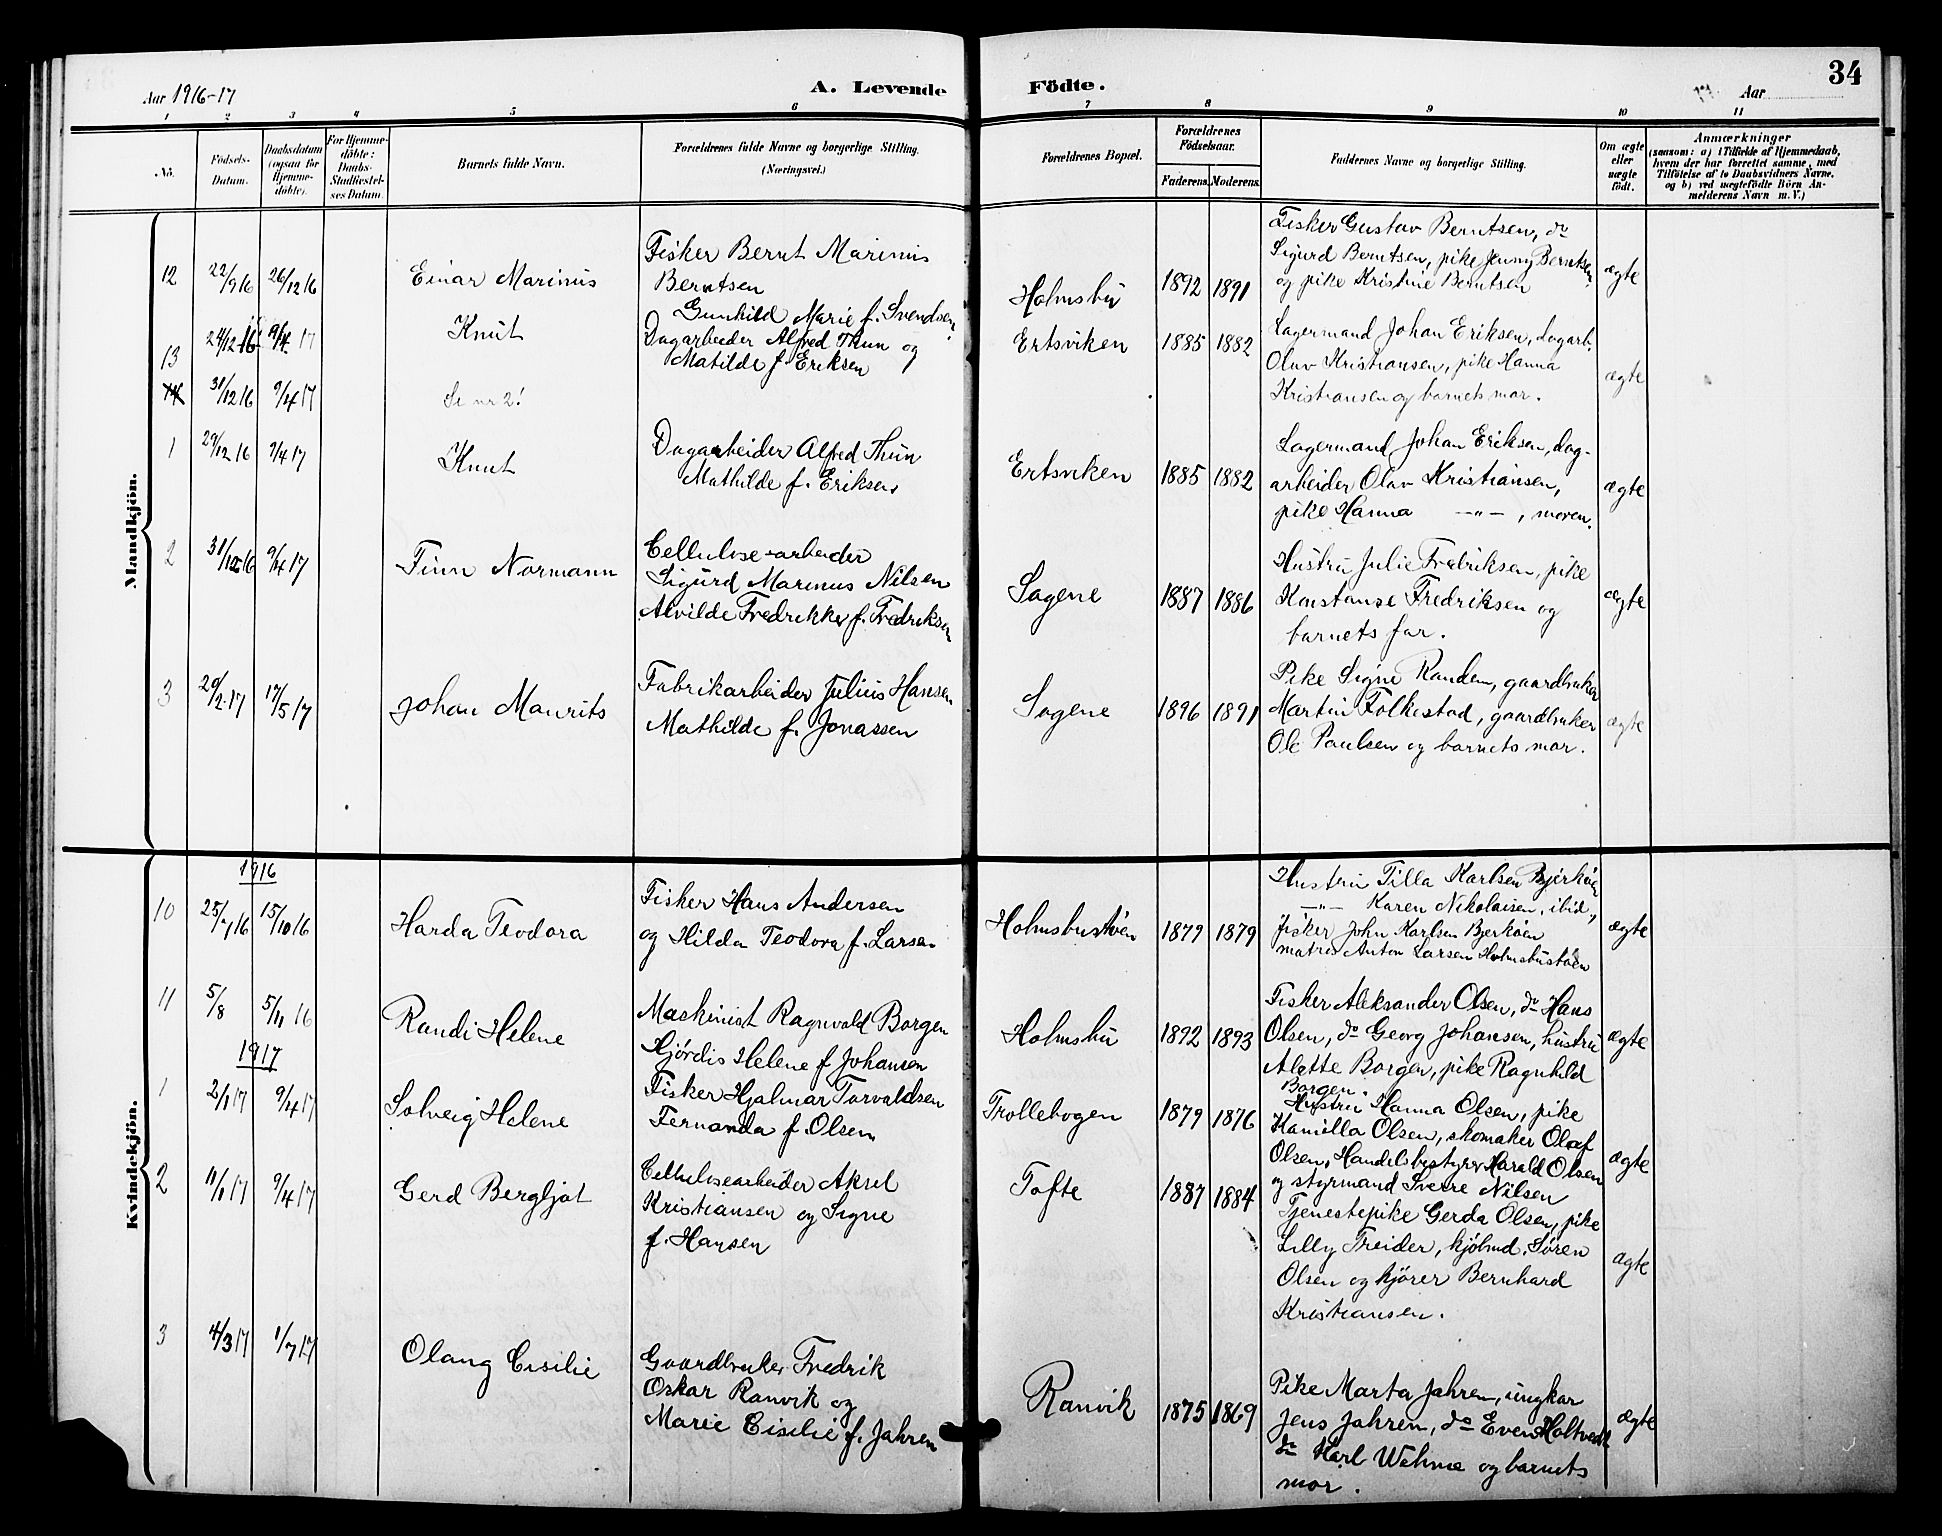 34
Aar 1916-17
A. Levende
Födte.
Aar
1 2 3 4 5 6 7 8 9 10 11
No.
Födsels-
Datum.
Daabsdatum
(ogsaa for
Hjemme-
döbte).
For Hjemme-
döbte:
Daabs-
Stadfæstel-
ses Datum.
Barnets fulde Navn.
Forældrenes fulde Navne og borgerlige Stilling.
(Næringsvei.)
Forældrenes Bopæl.
Forældrenes
Födselsaar.
Faderens.
Moderens.
Faddernes Navne og borgerlige Stilling.
Om ægte
eller
uægte
födt.
Anmærkninger
(saasom: a) i Tilfælde af Hjemmedaab,
hvem der har forrettet samme, med
Tilföielse af to Daabsvidners Navne.
og b) ved uægtefödte Börn An-
melderens Navn m. V.)
Mandkjön.
12 22/9 16 26/12 16 Einar Marinus
Fisker Bernt Marinus
Berntsen
Gunhild Marie f. Svendsen
Holmsbu 1892 1891
Fisker Gustav Berntsen, do
Sigurd Berntsen, pike Jenny Berntsen
og pike Kristine Berntsen
ægte
13 24/12 16 9/4 17 Knut
Dagarbeider Alfred Thun og
Matilde f. Eriksen
Ertsviken 1885 1882
Lagermand Johan Eriksen, dagarb.
Olav Kristiansen, pike Hanna
Kristiansen og barnets mor.
ægte
14 31/12 16 9/4 17 Se nr 2!
1 29/12 16 9/4 17 Knut
Dagarbeider Alfred Thun
Mathilde f. Eriksen
Ertsviken 1885 1882
Lagermand Johan Eriksen, dag-
arbeider Olav Kristiansen,
pike Hanna —"—, moren.
ægte
2 31/12 16 9/4 17 Finn Normann
Cellulose-arbeider
Sigurd Marinus Nilsen
Alvilde Fredrikke f. Fredriksen
Sagene 1887 1886
Hustru Julie Fredriksen, pike
Konstanse Fredriksen og
barnets far.
ægte
3 20/2 17 17/5 17 Johan Maurits
Fabrikarbeider Julius Hansen
Mathilde f. Jonassen
Sagene 1896 1891
Pike Signe Randem, gaardbruker
Martin Folkestad, gaardbruker
Ole Paulsen og barnets mor.
ægte
Kvindekjön.
1916
10 25/7 16 15/10 16 Harda Teodora
Fisker Hans Andersen
og Hilda Teodora f. Larsen
Holmsbustøen 1879 1879
Hustru Tilla Karlsen Bjerkøen
—"— Karen Nikolaisen, ibid.,
fisker John Karlsen Bjerkøen
matros Anton Larsen Holmsbustøen
ægte
11 5/8 5/11 16 Randi Helene
Maskinist Ragnvald Borgen
Hjørdis Helene f Johansen
Holmsbu 1892 1893
Fisker Aleksander Olsen, do Hans
Olsen, do Georg Johansen, hustru
Alette Borgen, pike Ragnhild
Borgen.
ægte
1917
1 2/1 17 9/4 17 Solveig Helene
Fisker Hjalmar Torvaldsen
Fernanda f. Olsen
Trollebogen 1879 1876
Hustru Hanna Olsen, pike
Kamilla Olsen, skomaker Olaf
Olsen, Handelsbestyrer Harald Olsen
og styrmand Sverre Nilsen
ægte
2 11/1 17 9/4 17 Gerd Bergljot
Cellulosearbeider Aksel
Kristiansen og Signe
f. Hansen
Tofte 1887 1884
Tjenestepike Gerda Olsen, pike
Lilly Treider, kjøbmd. Søren
Olsen og kjører Bernhard
Kristiansen.
ægte
3 4/3 17 1/7 17 Olaug Cisilie
Gaardbruker Fredrik
Oskar Ranvik og
Marie Cisilie f. Jahren
Ranvik 1875 1869
Pike Marta Jahren, ungkar
Jens Jahren, do Even Holtvedt
do Karl Wehme og barnets
mor.
ægte